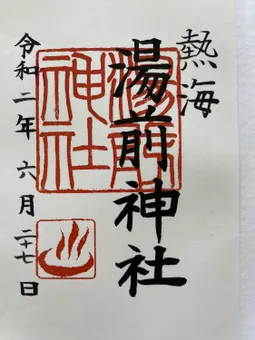 熱海
湯前神社
湯前神社
令和二年六月二十七日